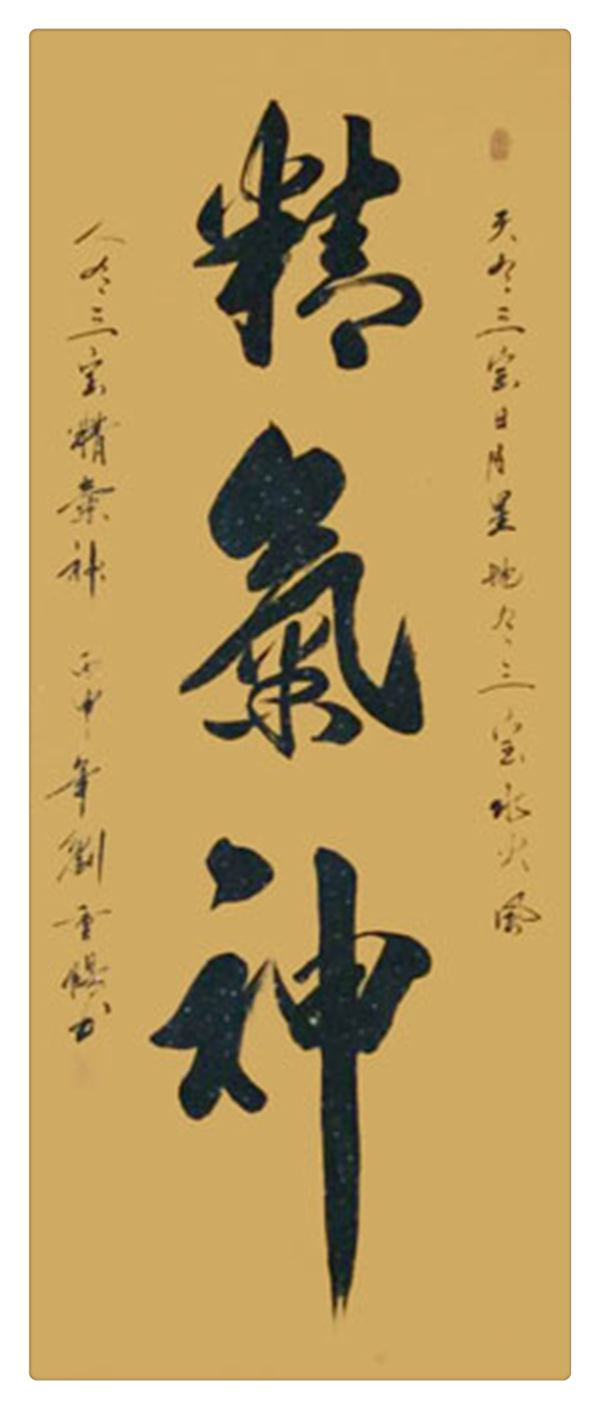 天有三宝日月星地有三宝水火風
精氣神
人有三宝精氣神 丙申年劉